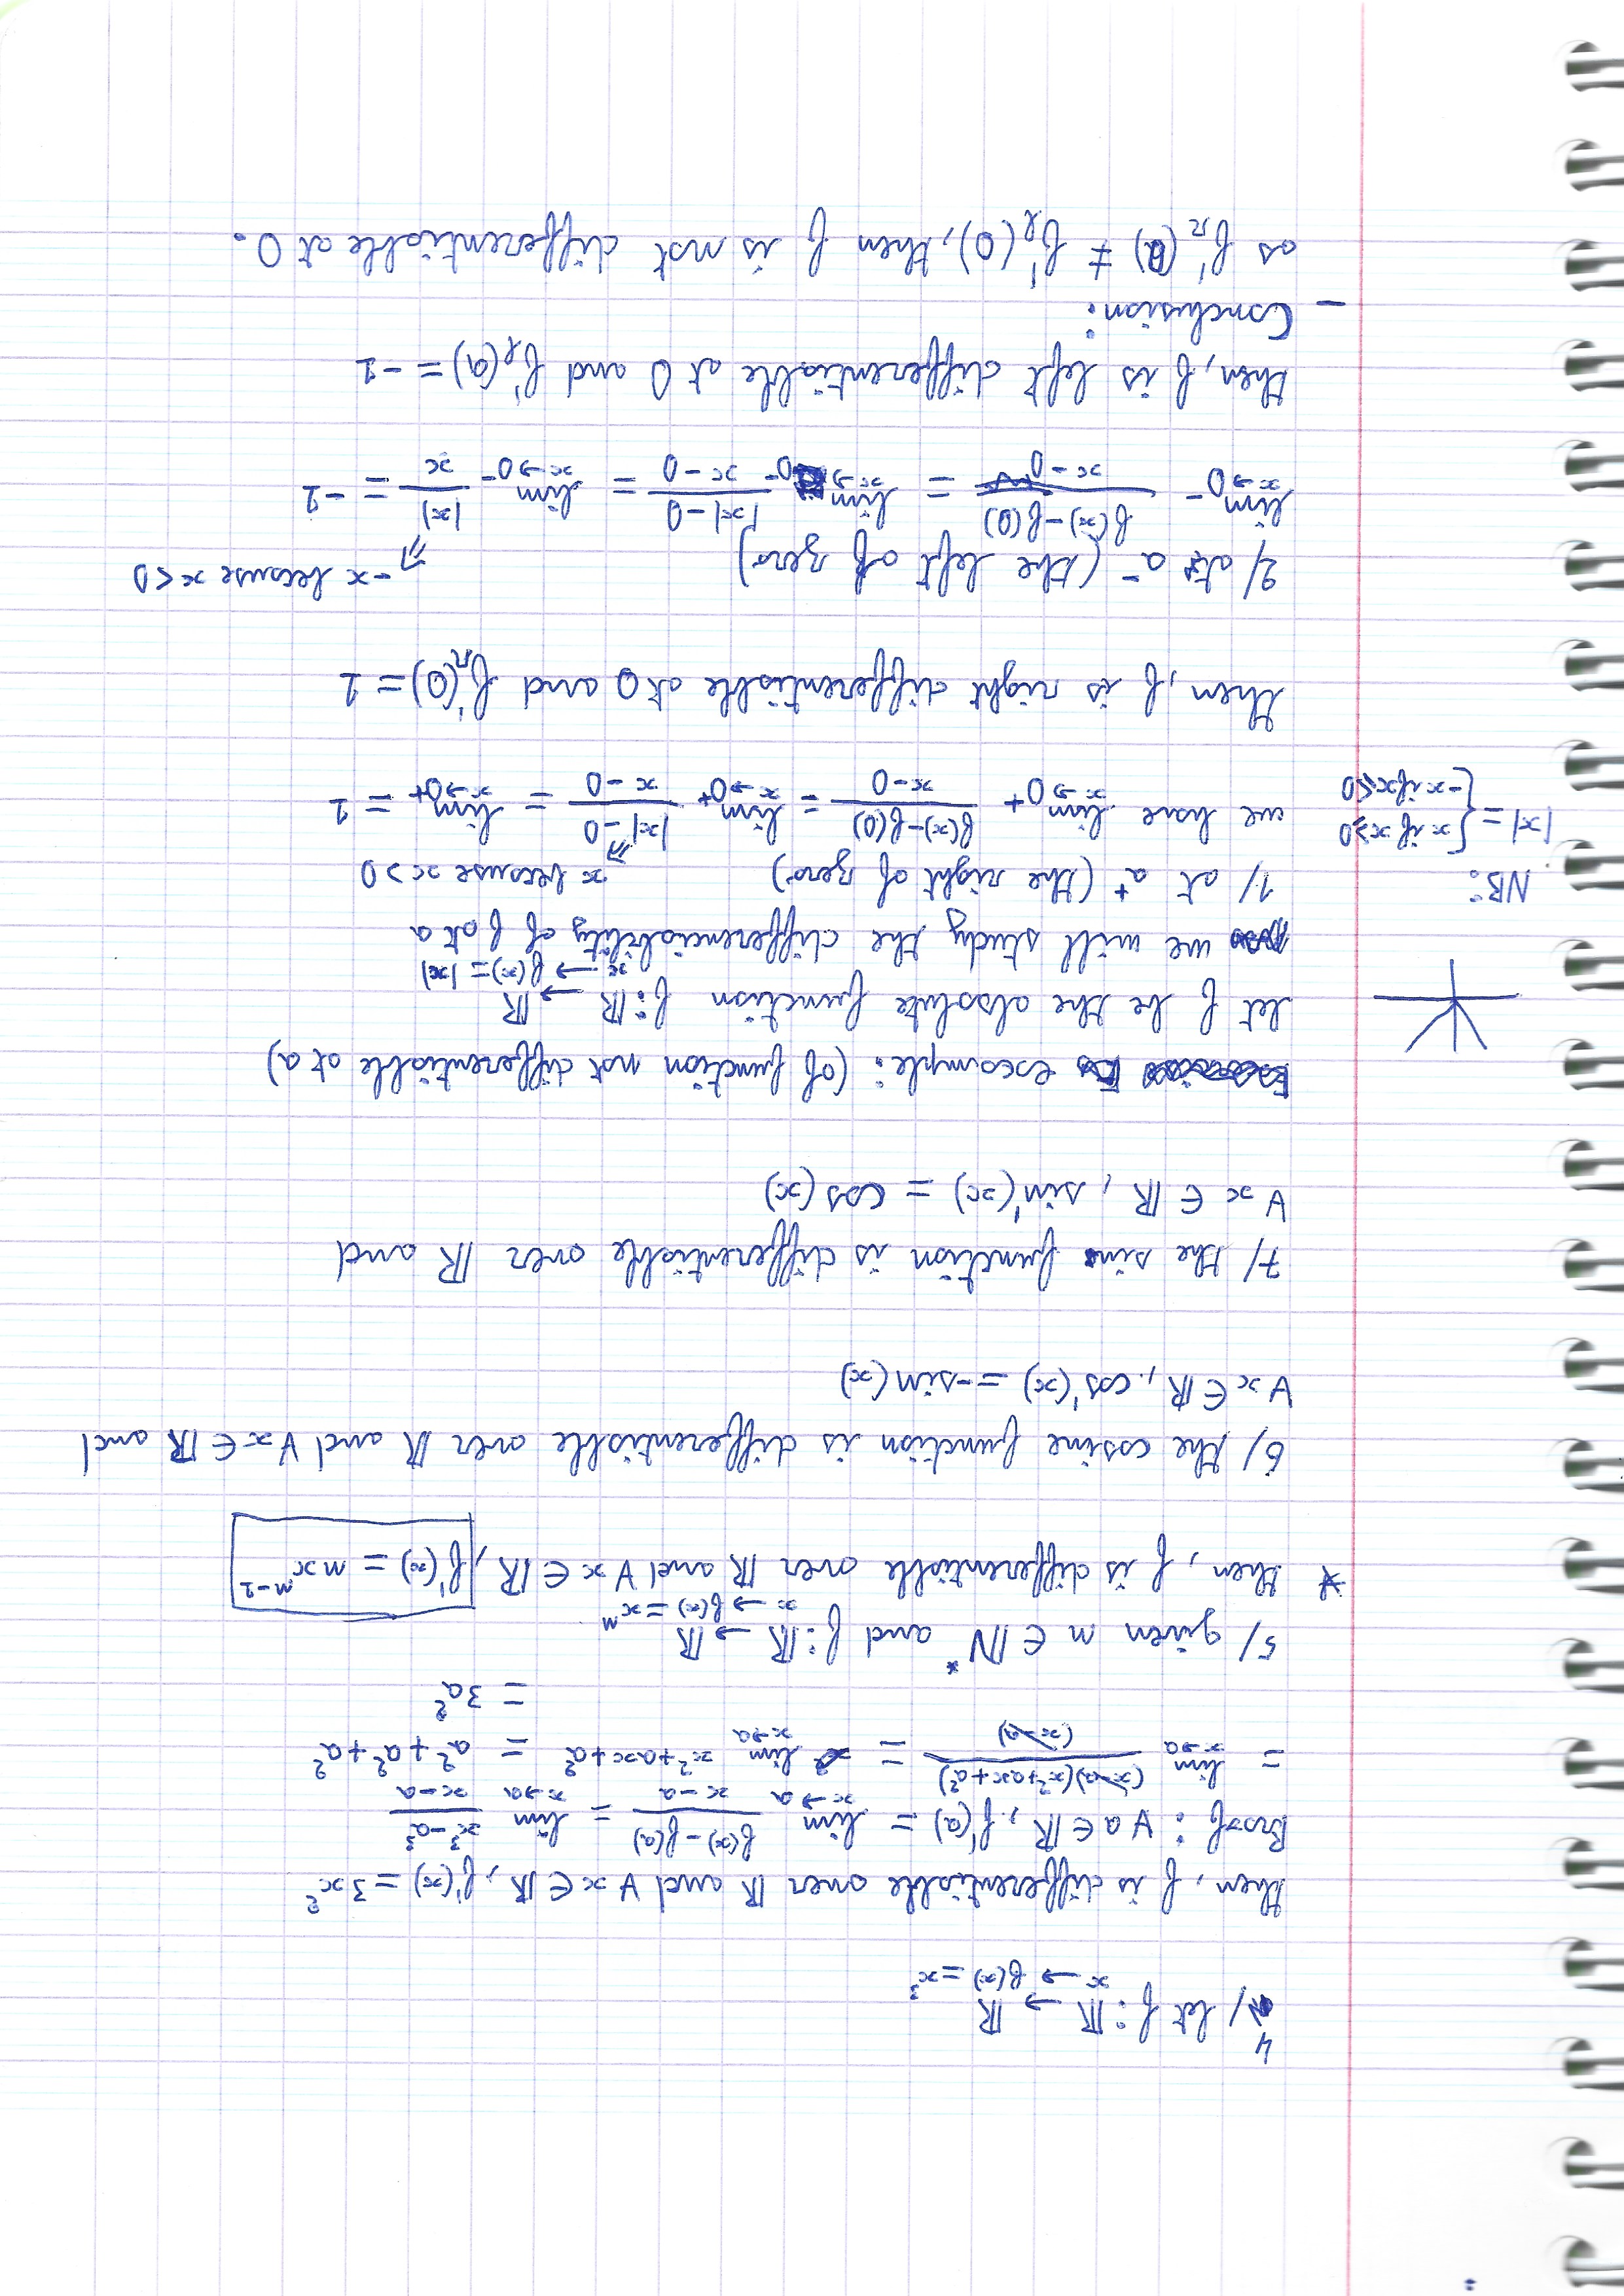 4/ let f : ℝ → ℝ
x → f(x) = x³
then, f is differentiable over ℝ and ∀ x ∈ ℝ, f'(x) = 3x²
Proof : ∀ a ∈ ℝ, f'(a) = lim x→a (f(x) - f(a))/(x - a) = lim x→a (x³ - a³)/(x - a)
= lim x→a (x-a)(x²+ax+a²)/(x-a) = lim x→a x²+ax+a² = a² + a² + a²
= 3a²
5/ given n ∈ ℕ* and f : ℝ → ℝ
x → f(x) = xⁿ
* then, f is differentiable over ℝ and ∀ x ∈ ℝ, f'(x) = nxⁿ⁻¹
6/ the cosine function is differentiable over ℝ and ∀ x ∈ ℝ and
∀ x ∈ ℝ, cos'(x) = -sin(x)
7/ the sin function is differentiable over ℝ and
∀ x ∈ ℝ, sin'(x) = cos(x)
example : (of function not differentiable at a)
let f be the absolute function f : ℝ → ℝ
x → f(x) = |x|
we will study the differenciability of f at a
NB:
|x| = { x if x ≥ 0
-x if x ≤ 0
1/ at a⁺ (the right of zero)
x because x > 0
we have lim x→0⁺ (f(x) - f(0))/(x - 0) = lim x→0⁺ (|x| - 0)/(x - 0) = lim x→0⁺ = 1
then, f is right differentiable at 0 and f'r(0) = 1
2/ at a⁻ (the left of zero)
-x because x < 0
lim x→0⁻ (f(x) - f(0))/(x - 0) = lim x→0⁻ (|x| - 0)/(x - 0) = lim x→0⁻ |x|/x = -1
then, f is left differentiable at 0 and f'ℓ(a) = -1
– Conclusion :
as f'r(0) ≠ f'ℓ(0), then f is not differentiable at 0.